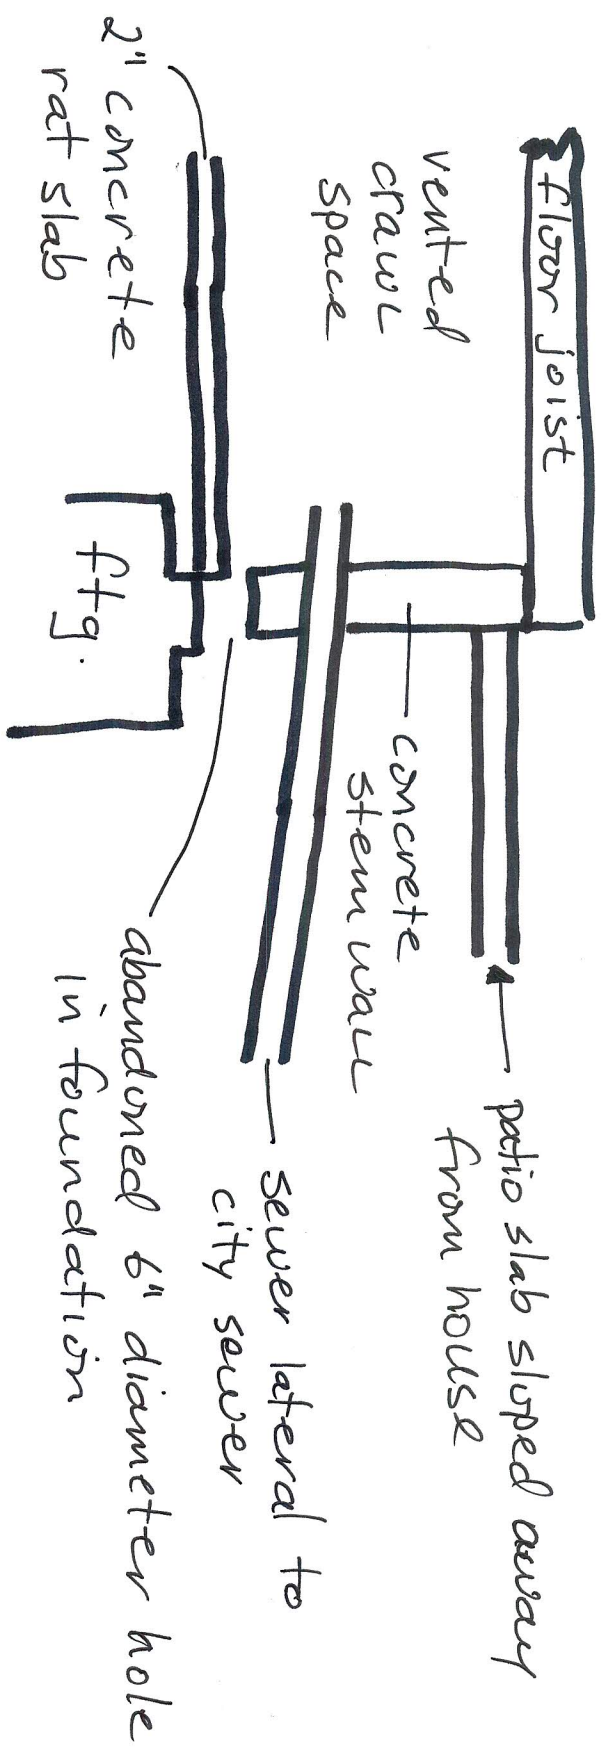 floor joist
vented
crawl
space
2" concrete
rat slab
ftg.
concrete
stem wall
patio slab sloped away
from house
sewer lateral to
city sewer
abandoned 6" diameter hole
in foundation